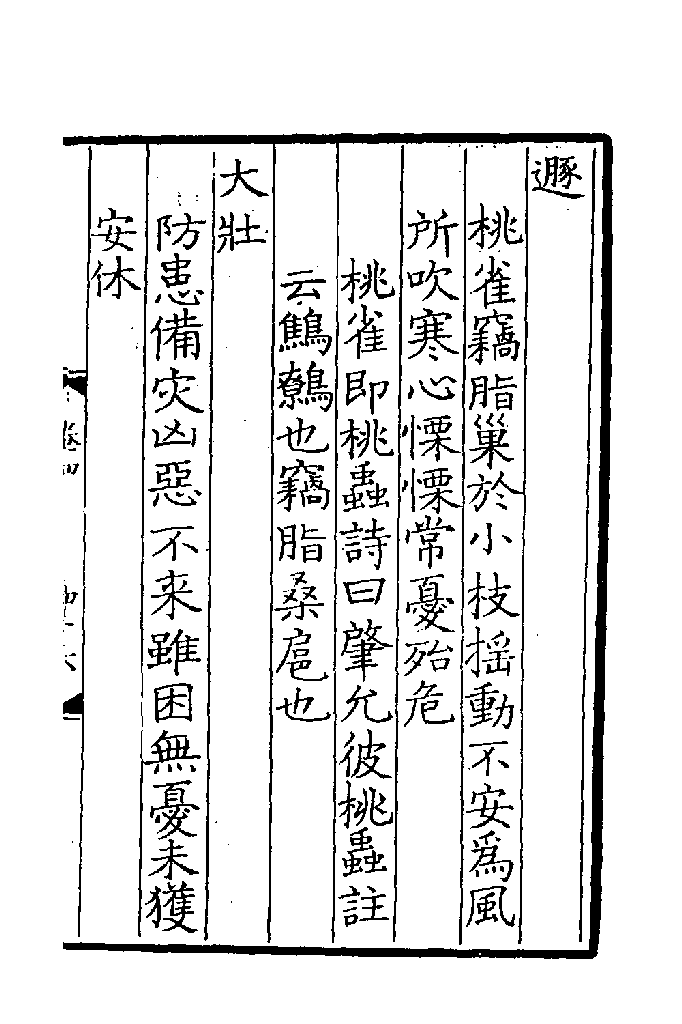 遯
桃雀竊脂巢於小枝揺動不安爲風
所吹寒心慄慄常憂殆危
桃雀即桃蟲詩曰肇允彼桃蟲註
云鷦鷯也竊脂桑扈也
大壯
防患備灾凶惡不来雖困無憂未獲
安休
卷四